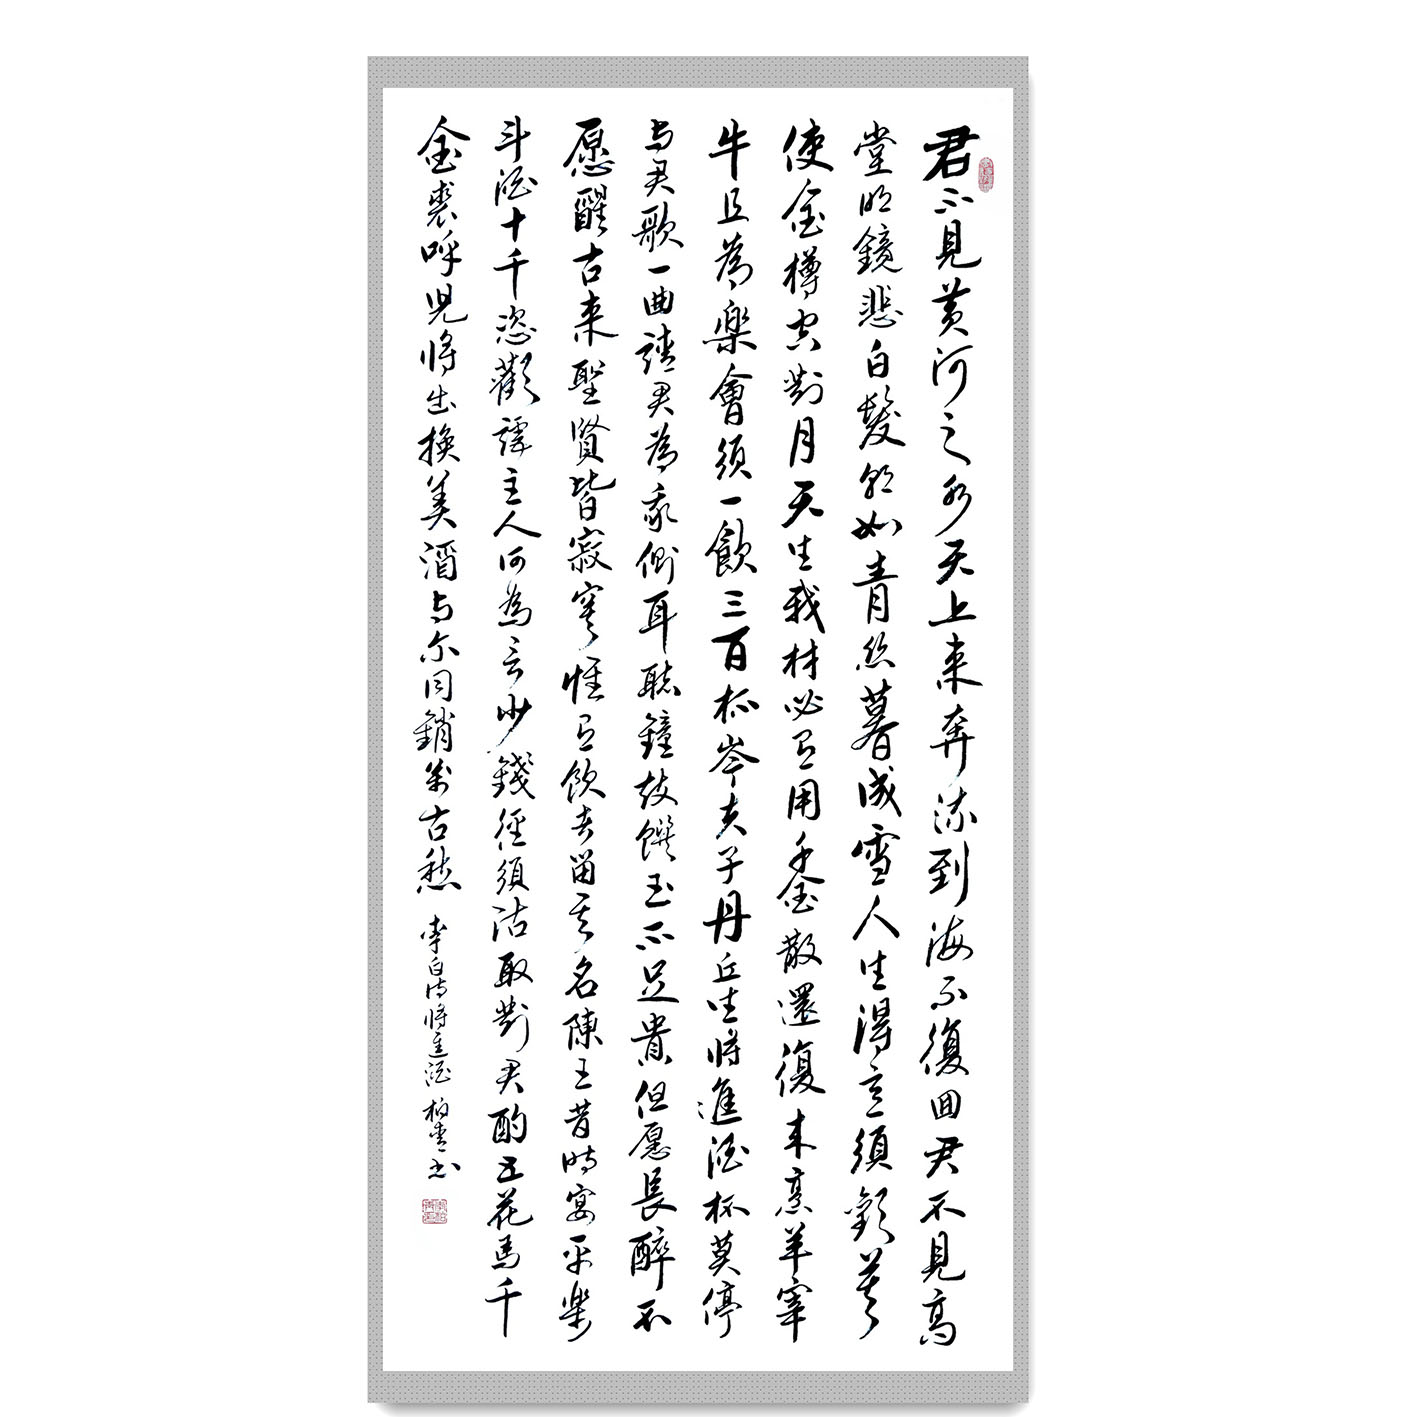 君不見黄河之水天上来奔流到海不復囬君不見高
堂明鏡悲白髮朝如青絲暮成雪人生得意須歡莫
使金樽空對月天生我材必有用千金散還復来烹羊宰
牛且為楽會須一飲三百杯岑夫子丹丘生將進酒杯莫停
与君歌一曲請君為我側耳聽鐘鼓饌玉不足貴但愿長醉不
愿醒古来聖賢皆寂寞惟有飲者留其名陳王昔時宴平樂
斗酒十千恣歡謔主人何為言少錢徑須沽取對君酌五花馬千
金裘呼兒將出換美酒与尔同銷萬古愁 李白詩將進酒 书